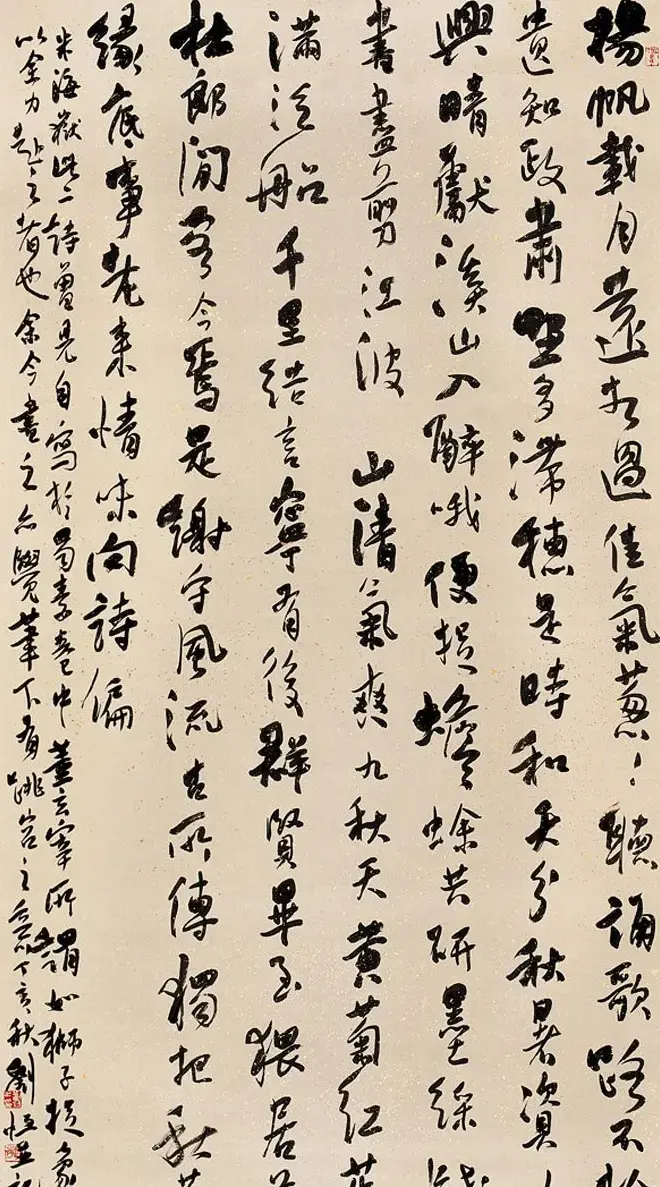 揚帆載月遠相過佳氣蔥〻聽誦歌路不拾
遺知政肅野多滯穗是時和天分秋暑資
興晴獻溪山入醉哦便捉蟾蜍共研墨綵箋
書盡剪江波 山清氣爽九秋天黃菊紅茱
滿泛船千里結言寧有後群賢畢至猥居前
杜郎閒客今焉是謝守風流古所傳獨把秋英
緣底事老來情味向詩偏
米海嶽此二詩曾見自寫於蜀素卷中董玄宰所謂如獅子捉象
以全力赴之者也余今書之亦覺筆下有跳宕之意丁亥秋劉恒並記